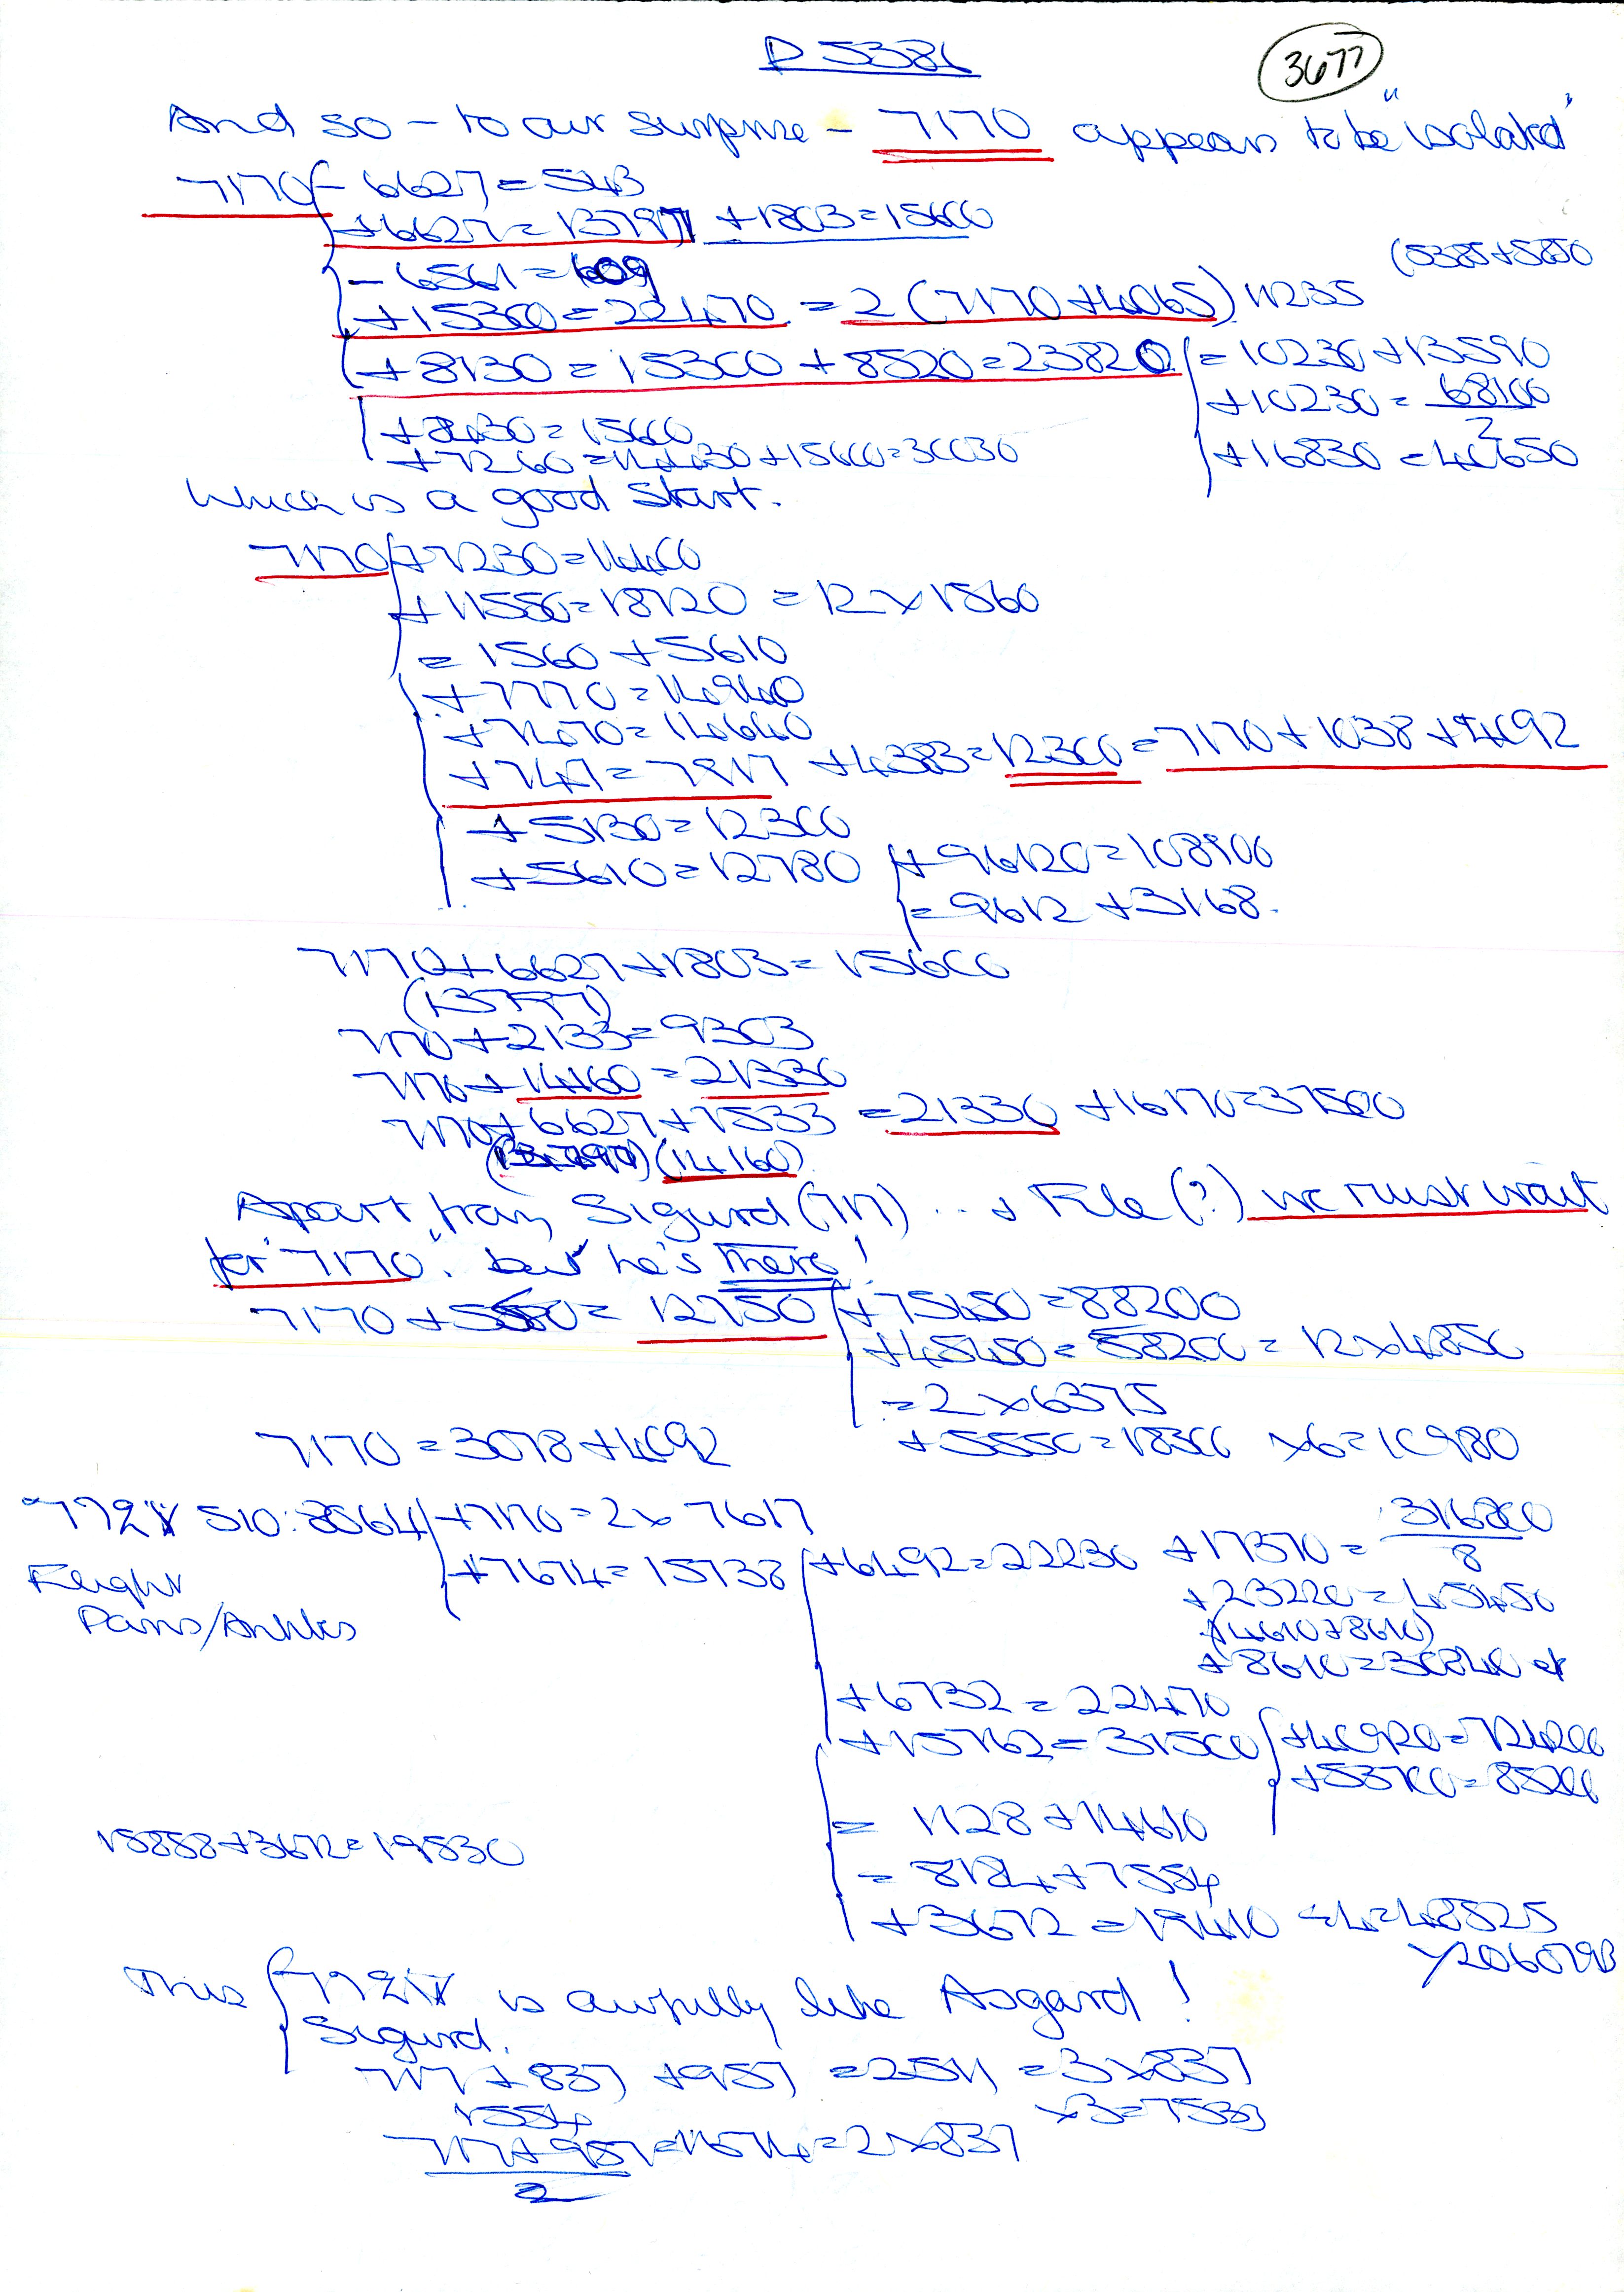 P 5386
3677
And so - to our surprise - 7170 appears to be "isolated"
7170 - 6627 = 543
+ 6627 = 13797 + 1803 = 15600
- 6561 = 609
(5385 + 5850
+ 15300 = 22470 = 2 (7170 + 4065) 11235
+ 8130 = 15300 + 8520 = 23820 = 10230 + 13590
+ 10230 = 68100
2
+ 16830 = 40650
+ 7260 = 14430 + 15600 = 30030
Which is a good start.
7170 + 7230 = 14400
= 1560 + 5610
+ 7770 = 14940
+ 7470 = 14640
+ 747 = 7917 + 4383 = 12300 = 7170 + 1038 + 4092
+ 5130 = 12300
+ 5610 = 12780 + 96120 = 108900
= 9612 + 3168.
7170 + 6627 + 1803 = 15600
(13797)
7170 + 2133 = 9303
7170 + 14160 = 21330
7170 + 6627 + 7533 = 21330 + 16170 = 37500
(14160)
Apart from Sigurd (717) ... + (?) we must wait
for "7170", but he's there!
7170 + 5580 = 12750 + 75450 = 88200
+ 45450 = 58200 = 12 x 4850
= 2 x 6375
7170 = 3078 + 4092 + 5550 = 18300 x 6 = 10980
510: 8064 + 7170 = 2 x 7617
+ 7674 = 15738 + 6492 = 22230 + 17370 = 316800
8
+ 23220 = 45450
+ 8610 = 30840
+ 6732 = 22470
+ 15762 = 31500 + 40920 = 72420
+ 53700 = 85200
= 1128 + 14610
15858 + 3672 = 19530
= 8184 + 7554
+ 3672 = 19410
This is awfully like Asgard!
Sigurd.
717 + 837 + 957 = 2511 = 3 x 837
1554 x 3 = 7533
717 + 957 = 1674 = 2 x 837
2